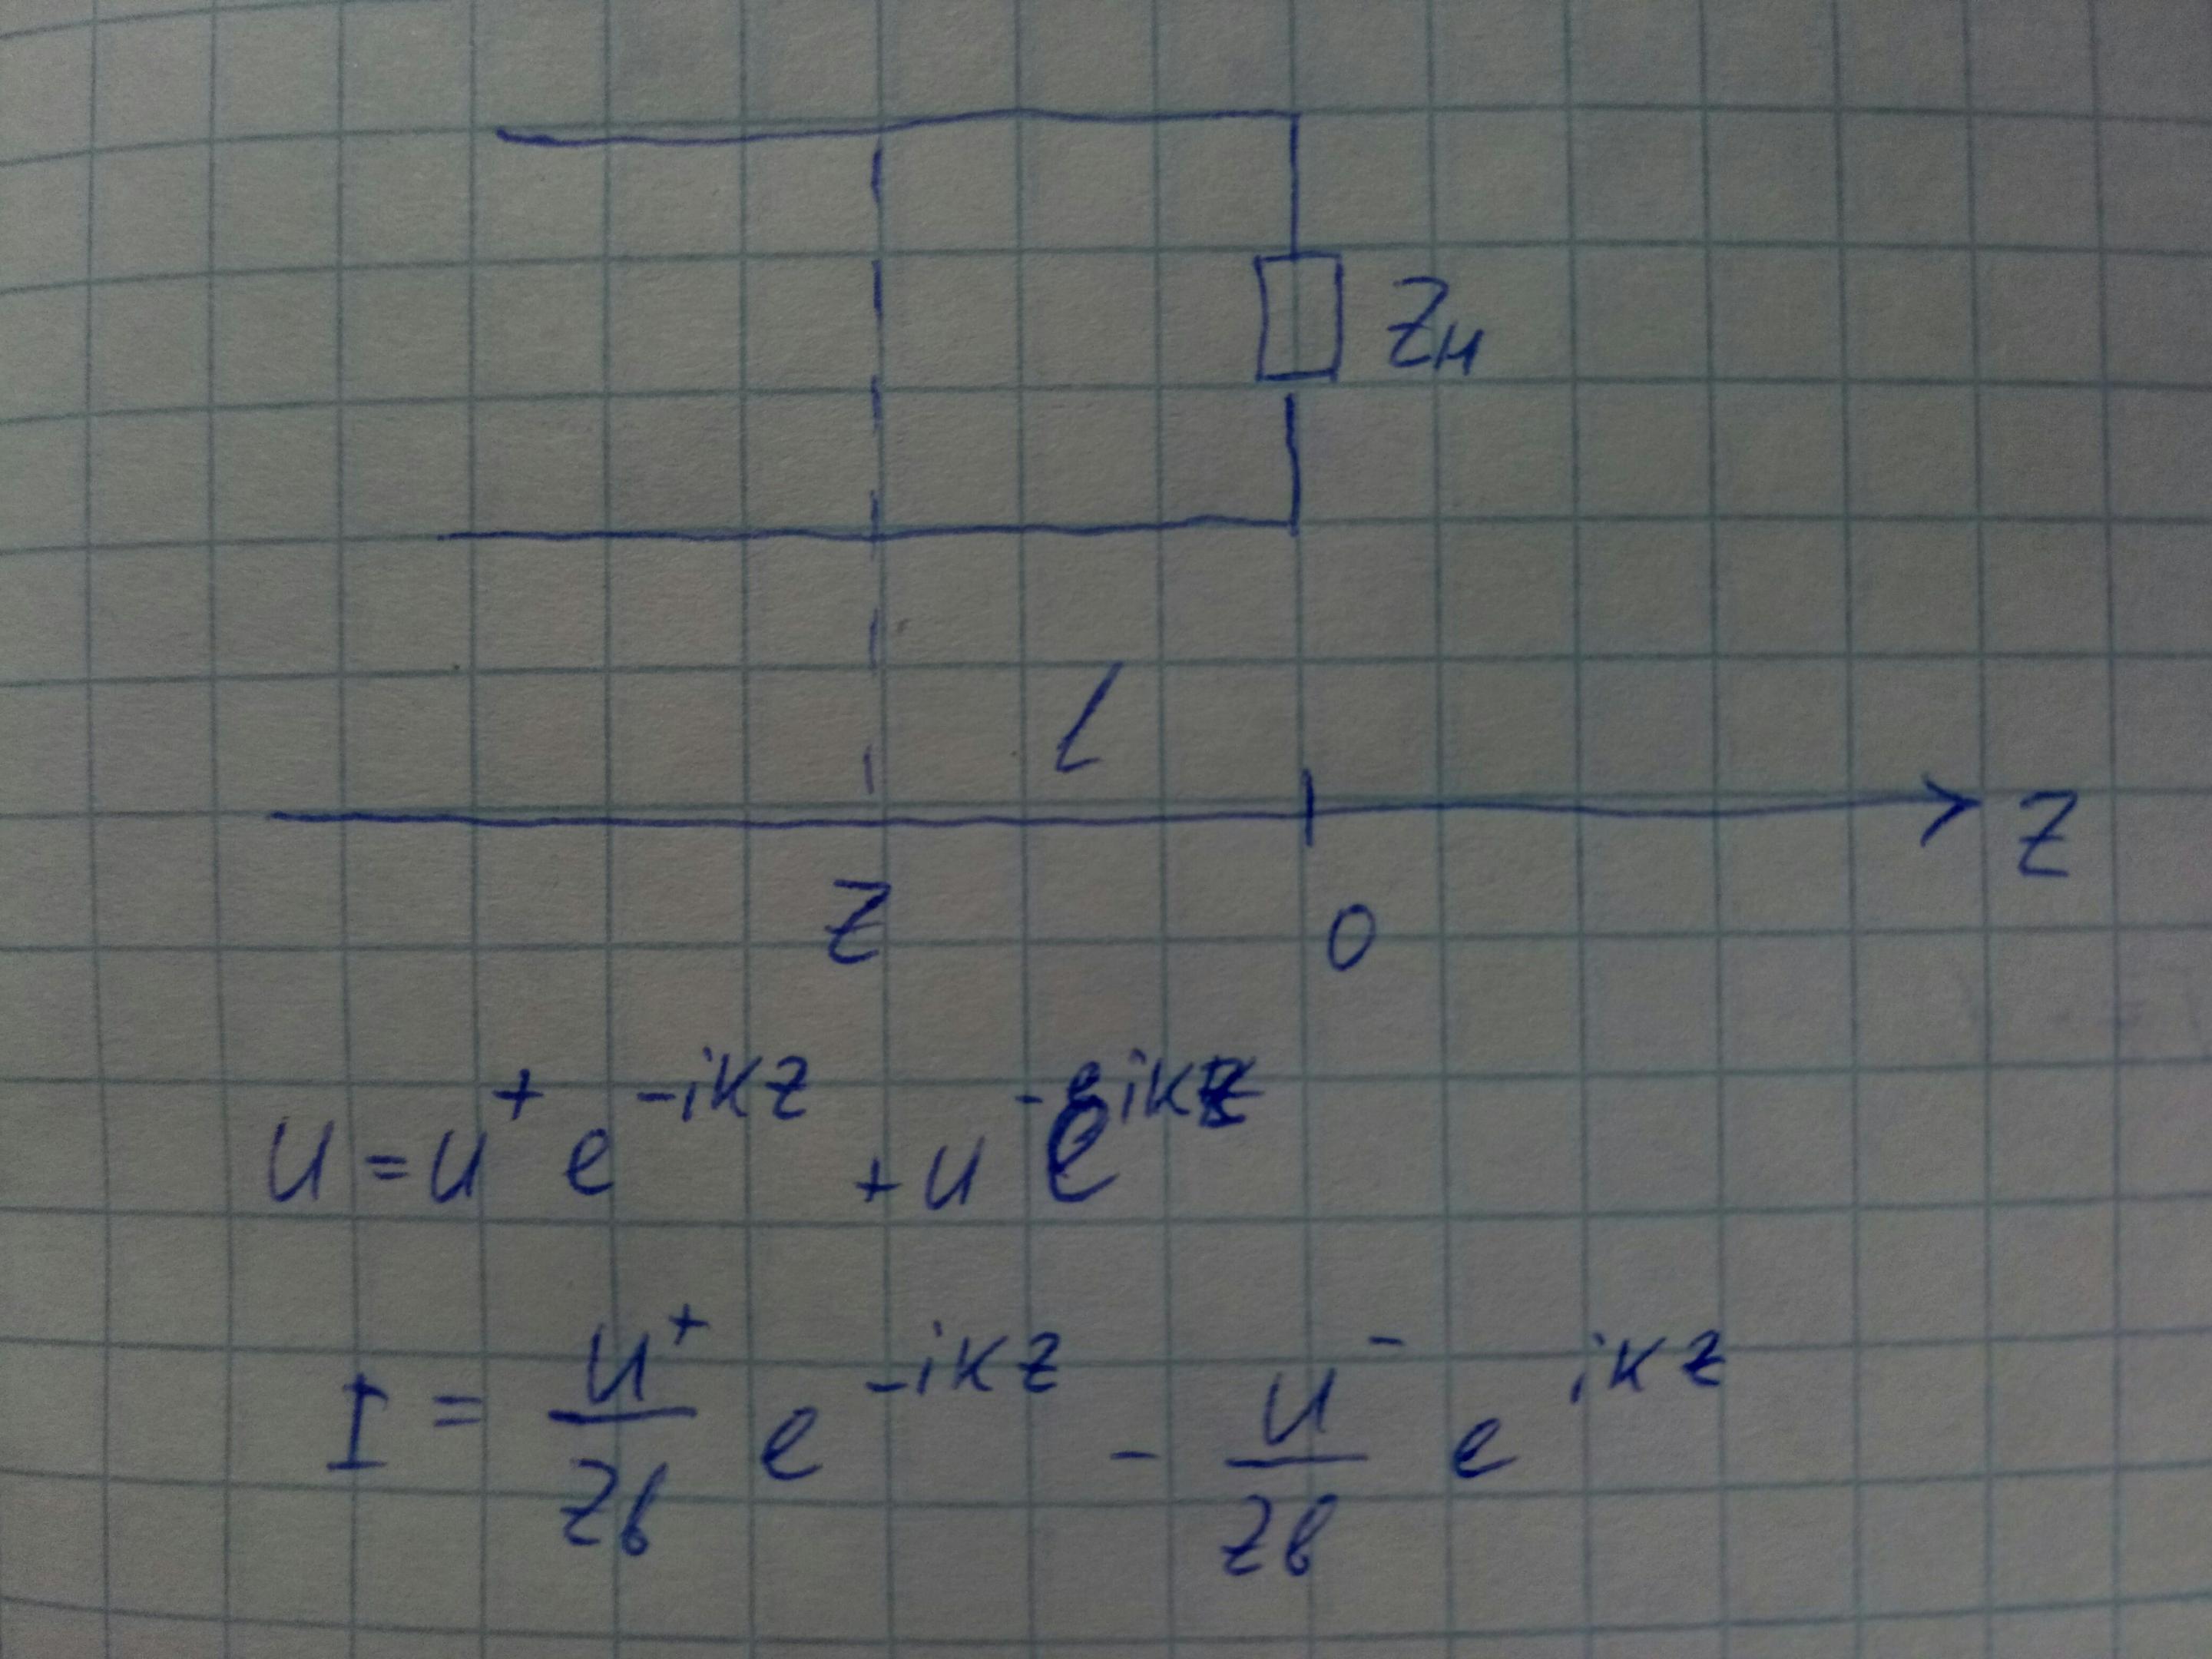 Zн
l
z
z 0
U = U⁺ e^{-ikz} + U⁻ e^{ikz}
I = U⁺/Zв e^{-ikz} - U⁻/Zв e^{ikz}